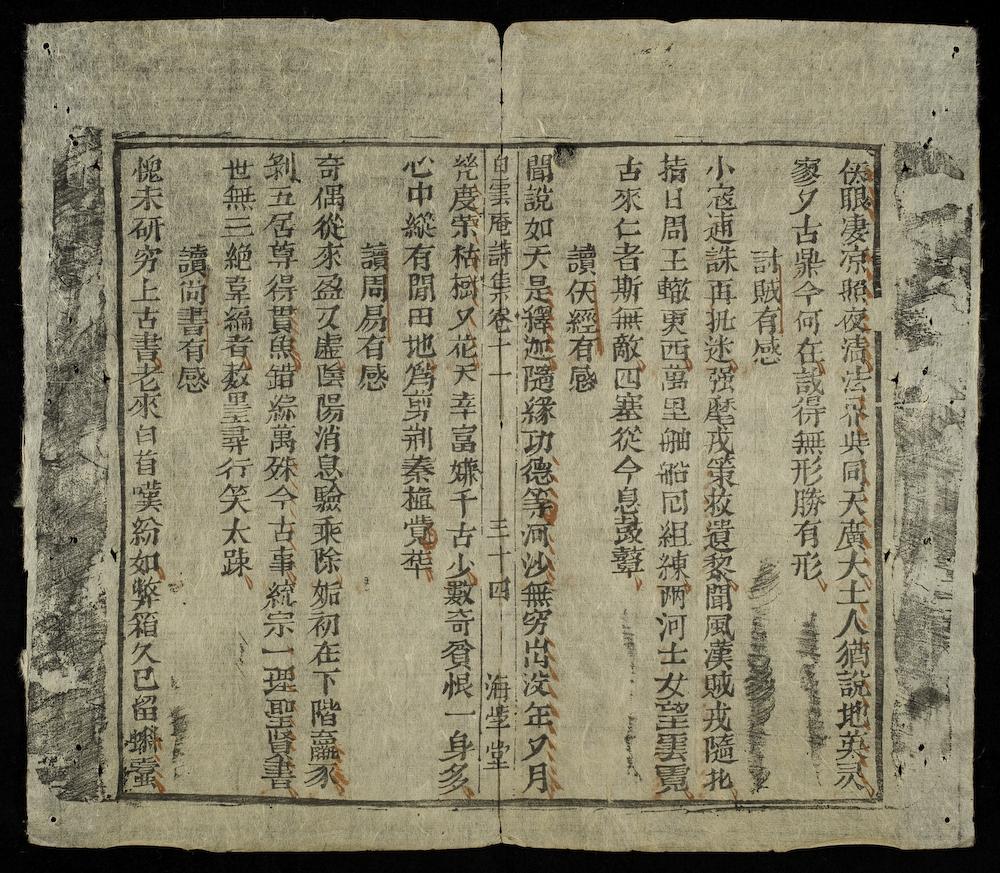 仸眼凄凉照夜清法界共同天廣大土人猶說地英灵
寥夕古鼎今何在哉得無形勝有形
討賊有感
小寇逋誅再抋迷强麾戎策救遺黎聞風漢賊戎隨北
指日周王轍更西萬里舳船囘組練兩河士女望雲霓
古來仁者斯無敵四塞從今息鼓鼙
讀仸經有感
聞說如天是釋迦隨緣功德等河沙無穷出没年夕月
㡬度荣枯樹又花天幸富嫌千古少數奇貧恨一身多
白雲庵詩集卷二 三十四 海學堂
心中縱有閒田地爲剪荆秦植覺華
讀周易有感
奇偶從來盈又虛陰陽消息驗乘除姤初在下階羸豕
剝五居尊得貫魚錯綜萬殊今古事統宗一理聖賢書
世無三絶韋編者数墨尋行笑太踈
讀尚書有感
愧未研穷上古書老來白首嘆紛如弊箱久已留蠏蠹